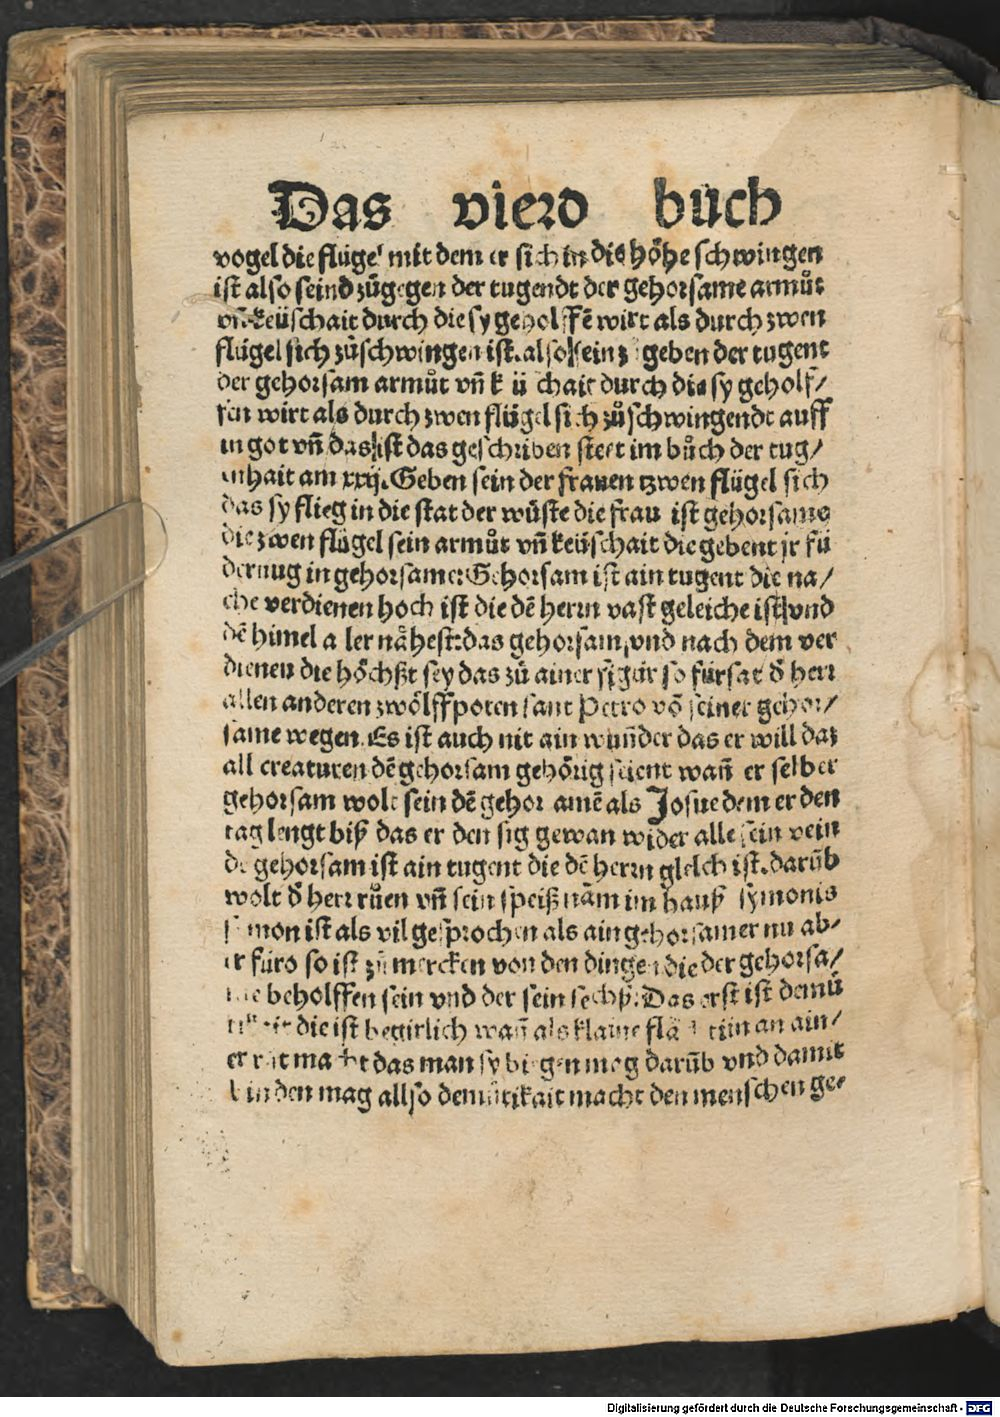 Das vierd bůch
vogel die flügel mit dem er sich in die höhe schwingen
ist also seind zůgegen der tugendt der gehorsame armůt
vñ keüschait durch die sy geholffē wirt als durch zwen
flügel sich zůschwingen ist. also sein geben der tugent
der gehorsam armůt vñ keüschait durch die sy geholf/
fen wirt als durch zwen flügel sich zůschwingende auff
in got vñ das ist das geschriben steet im bůch der tug/
enhait am xxij. Geben sein der frauen tzwen flügel sich
das sy flieg in die stat der wůste die frau ist gehorsame
die zwen flügel sein armůt vñ keüschait die gebent jr fü
dernug in gehorsame: Gehorsam ist ain tugent die na/
che verdienen hoch ist die dē herrn vast geleiche ist vnd
dē himel aler nåhest: das gehorsam, vnd nach dem ver
dienen die höchßt sey das zů ainer figur so fürsat d̄ herr
allen anderen zwölffpoten sant Petro vō seiner gehor/
same wegen. Es ist auch nit ain wunder das er will daz
all creaturen dē gehorsam gehörig seient wañ er selber
gehorsam wolt sein dē gehorsamē als Josue dem er den
tag lengt biß das er den sig gewan wider alle sein vein
de gehorsam ist ain tugent die dē herrn gleich ist. darūb
wolt d̄ herr růen vñ sein speiß nam im hauß symonis
symon ist als vil gesprochen als ain gehorsamer nu ab/
er füro so ist zů mercken von den dingen die der gehorsa/
me beholffen sein vnd der sein sechß. Das erst ist demů
tikeit die ist begirlich wañ als klaine an ain/
er macht das man sy biegen mag darūb vnd damit
binden mag allso demůtikait macht den menschen ge/
Digitalisierung gefördert durch die Deutsche Forschungsgemeinschaft - DFG